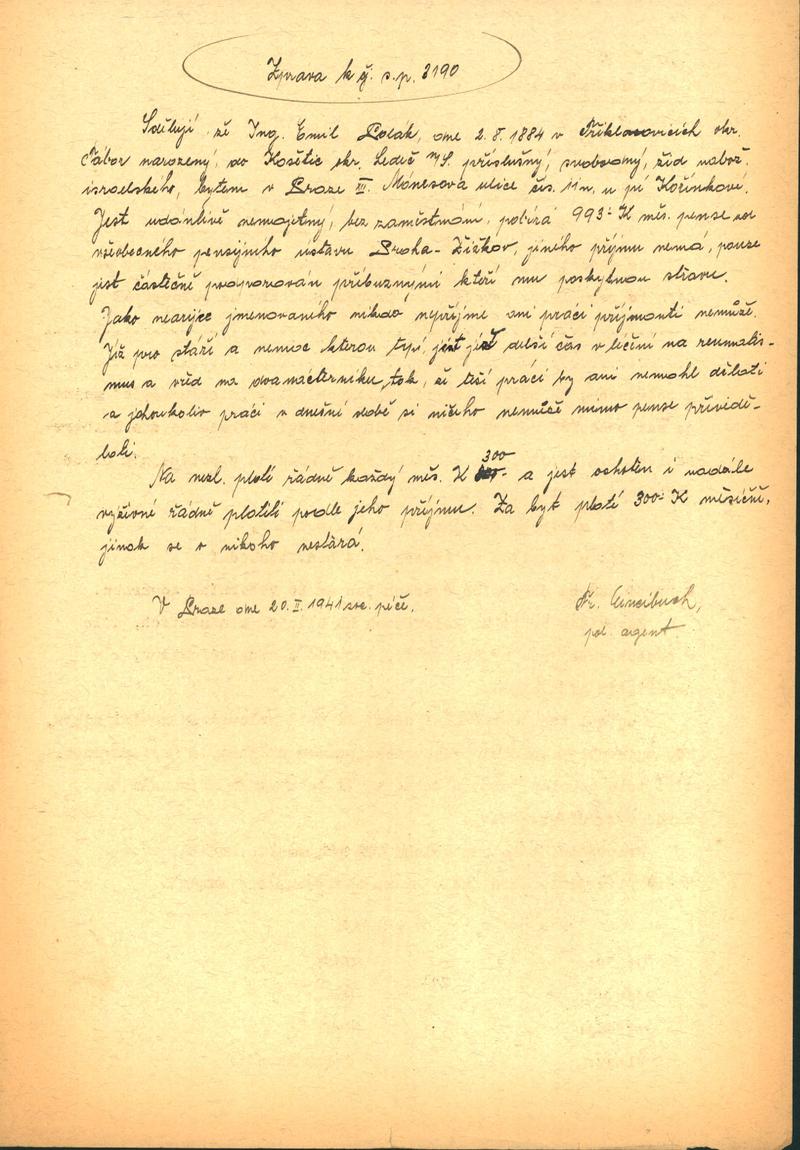 Zpráva k čj. s.p. 3190
Sděluji, že Ing. Emil Polák, dne 2.8.1884 v Přiklasovicích okr.
Tábor narozený, do Košetic okr. Ledeč n/S. příslušný, svobodný, žid nábož.
israelského, bytem v Praze III. Mánesova ulice čís. 11n. u pí Kořínkové.
Jest udánlivě nemajetný, bez zaměstnání, pobírá 993·- K měs. pense od
všeobecného pensijního ústavu Praha-Žižkov, jiného příjmu nemá, pouze
jest částečně podporován příbuznými kteří mu poskytnou stravu.
Jako nearijce jmenovaného nikdo nepřijme ani práci přijmouti nemůže.
Již pro stáří a nemoc kterou trpí, jest již delší čas v léčení na reumatis-
mus a vřed na dvanácterníku, tak, že těší práci by ani nemohl dělati
a jakoukoliv práci v dnešní době si ničeho nemůže mimo pense přividě-
lati.
Na nezl. platí řádně každý měs. K 300 - a jest ochoten i nadále
vyživné řádně platiti podle jeho příjmu. Za byt platí 300·- K měsíčně,
jinak se o nikoho nestará.
V Praze dne 20. II. 1941
Fr. pol. agent